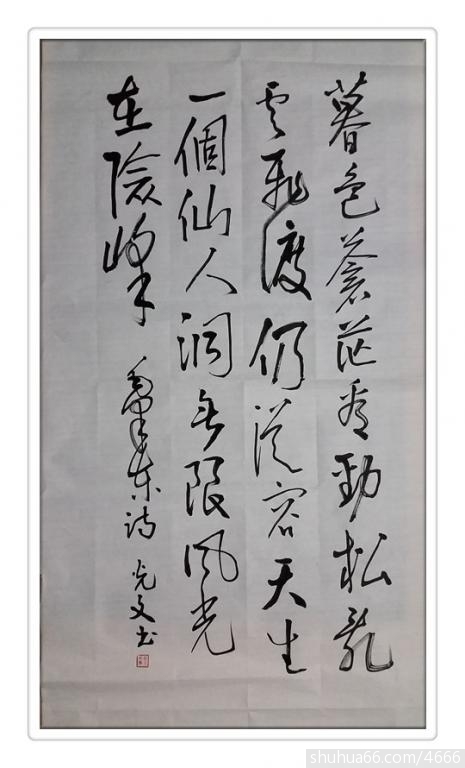 暮色蒼茫看勁松亂
雲飛渡仍從容天生
一個仙人洞無限風光
在險峰 毛澤東詩 光文書
shuhua66.com/4666